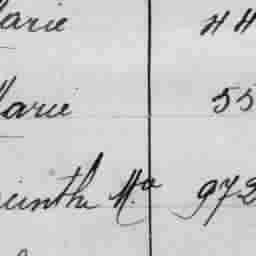 Marie 44
Marie 55
acinthe M.a 972